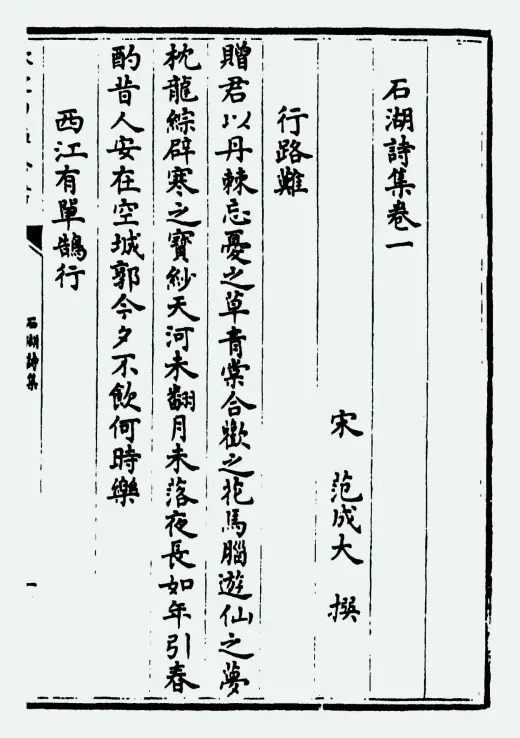 石湖詩集卷一
宋 范成大 撰
行路難
贈君以丹棘忘憂之草青棠合歡之花馬腦遊仙之夢
枕龍綜辟寒之寶紗天河未翻月未落夜長如年引春
酌昔人安在空城郭今夕不飲何時樂
西江有單鵠行
石湖詩集
一